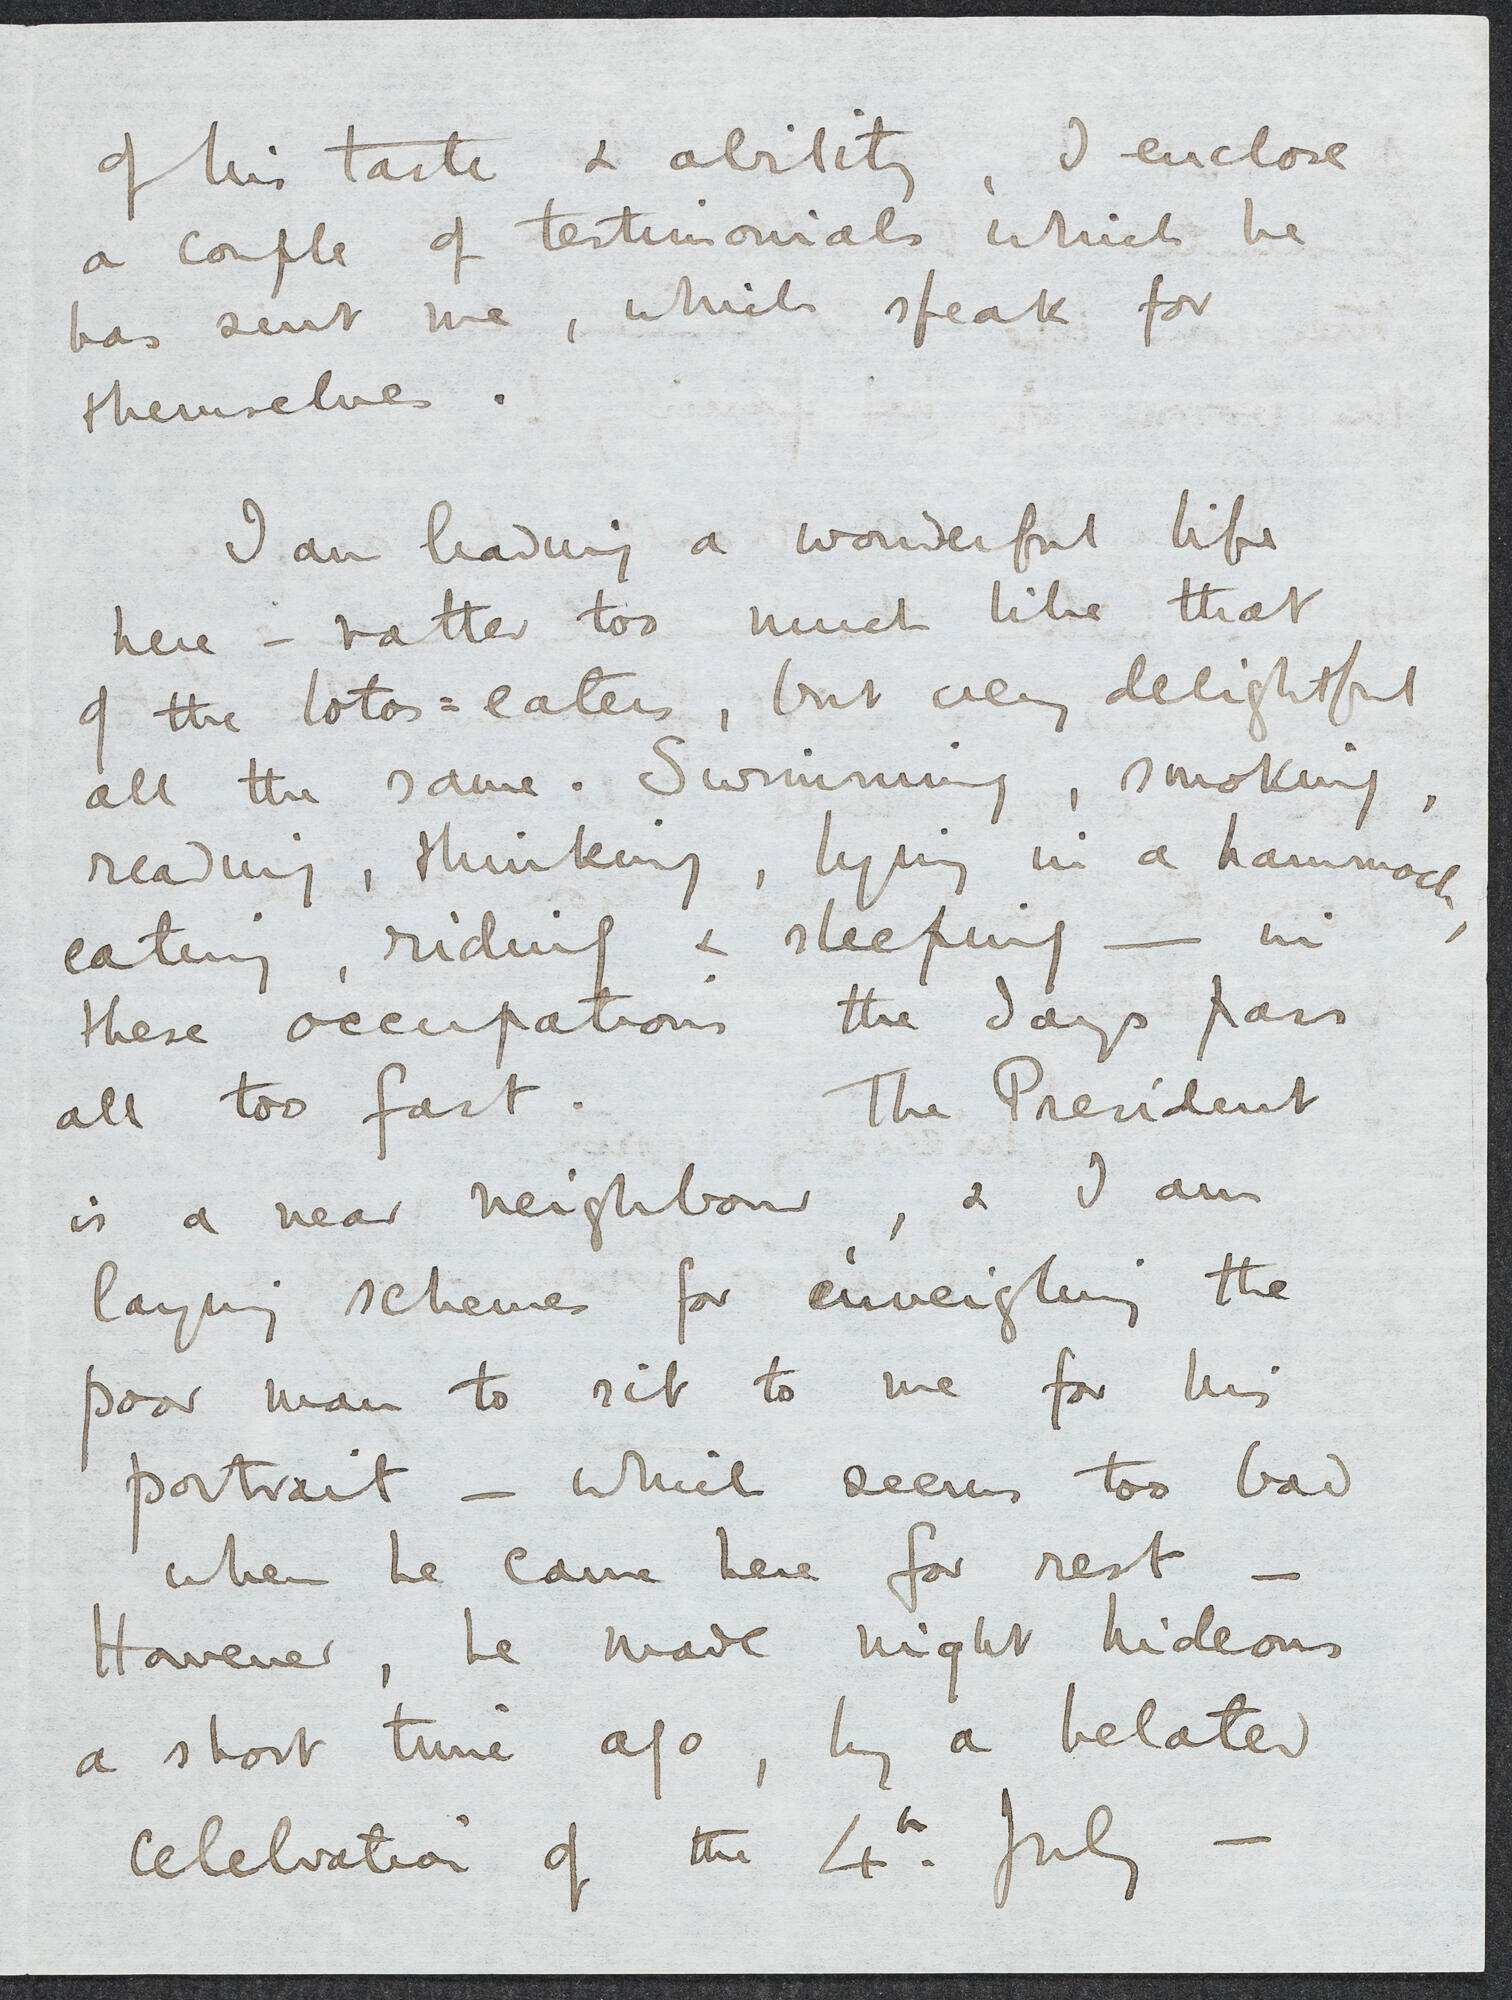 of his taste & ability, I enclose
a couple of testimonials which he
has sent me, which speak for
themselves.
I am leading a wonderful life
here - rather too much like that
of the lotos=eaters, but very delightful
all the same. Swimming, smoking,
reading, thinking, lying in a hammock,
eating, riding & sleeping — in
these occupations the days pass
all too fast. The President
is a near neighbour, & I am
laying schemes for inveigling the
poor man to sit to me for his
portrait - which seems too bad
when he came here for rest -
However, he made night hideous
a short time ago, by a belated
celebration of the 4th. July -